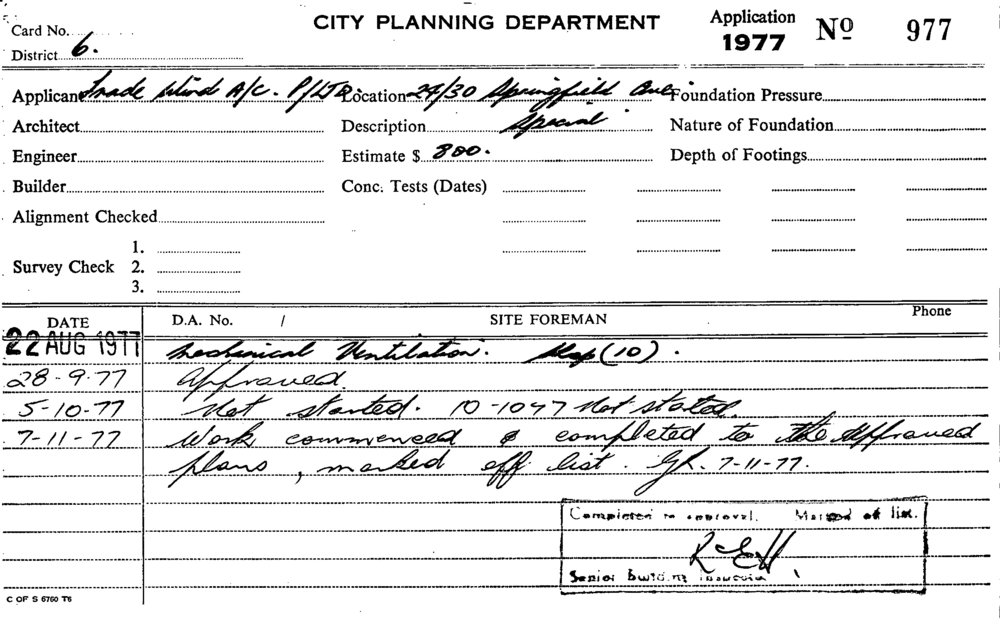 Card No.
CITY PLANNING DEPARTMENT
Application
1977 Nº 977
District 6.
Applicant Trade Wind A/C. P/LTD. Location 24/30 Springfield Ave. Foundation Pressure
Architect Description Special Nature of Foundation
Engineer Estimate $ 800. Depth of Footings
Builder Conc. Tests (Dates)
Alignment Checked
1.
Survey Check 2.
3.
DATE D.A. No. / SITE FOREMAN Phone
22 AUG 1977 Mechanical Ventilation. (10).
28-9-77 Approved.
5-10-77 Not started. 10-10-77 Not stated.
7-11-77 Work commenced & completed to the approved
plans, marked off list. 7-11-77.
Completed to approval. Marked of list.
Senior Building Inspector
C OF S 6760 T6